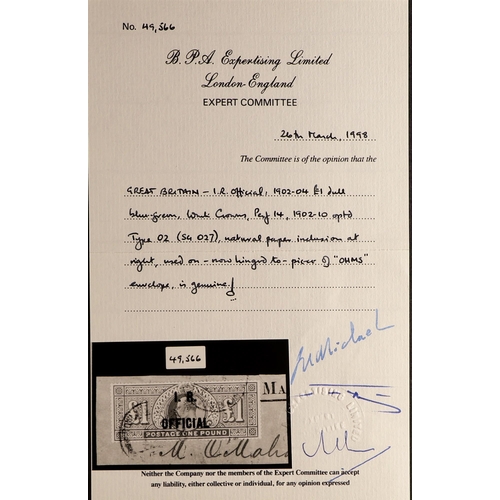 No. 49,566
B.P.A. Expertising Limited
London-England
EXPERT COMMITTEE
26th March, 1998
The Committee is of the opinion that the
GREAT BRITAIN - I.R. Official, 1902-04 £1 dull
blue-green, Wmk Crowns, Perf 14, 1902-10 optd
Type 02 (SG 027), natural paper inclusion at
right, used on - now hinged to - piece of "OHMS"
envelope, is genuine.
49,566
I. R.
OFFICIAL
£1
£1
POSTAGE ONE POUND
MA
M. O'Maho
Neither the Company nor the members of the Expert Committee can accept
any liability, either collective or individual, for any opinion expressed